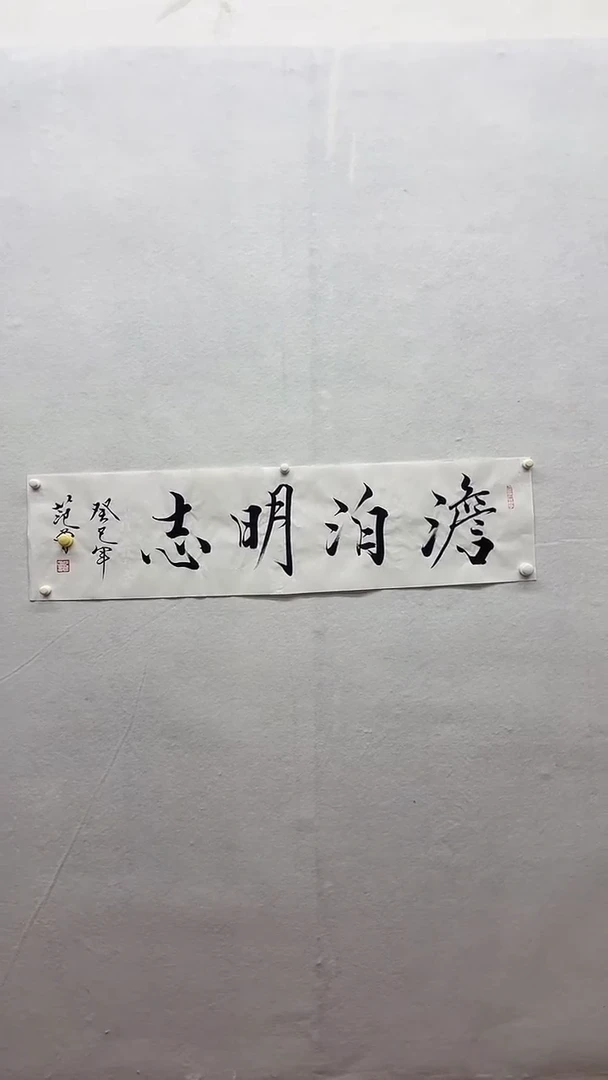 澹泊明志
癸巳年
范